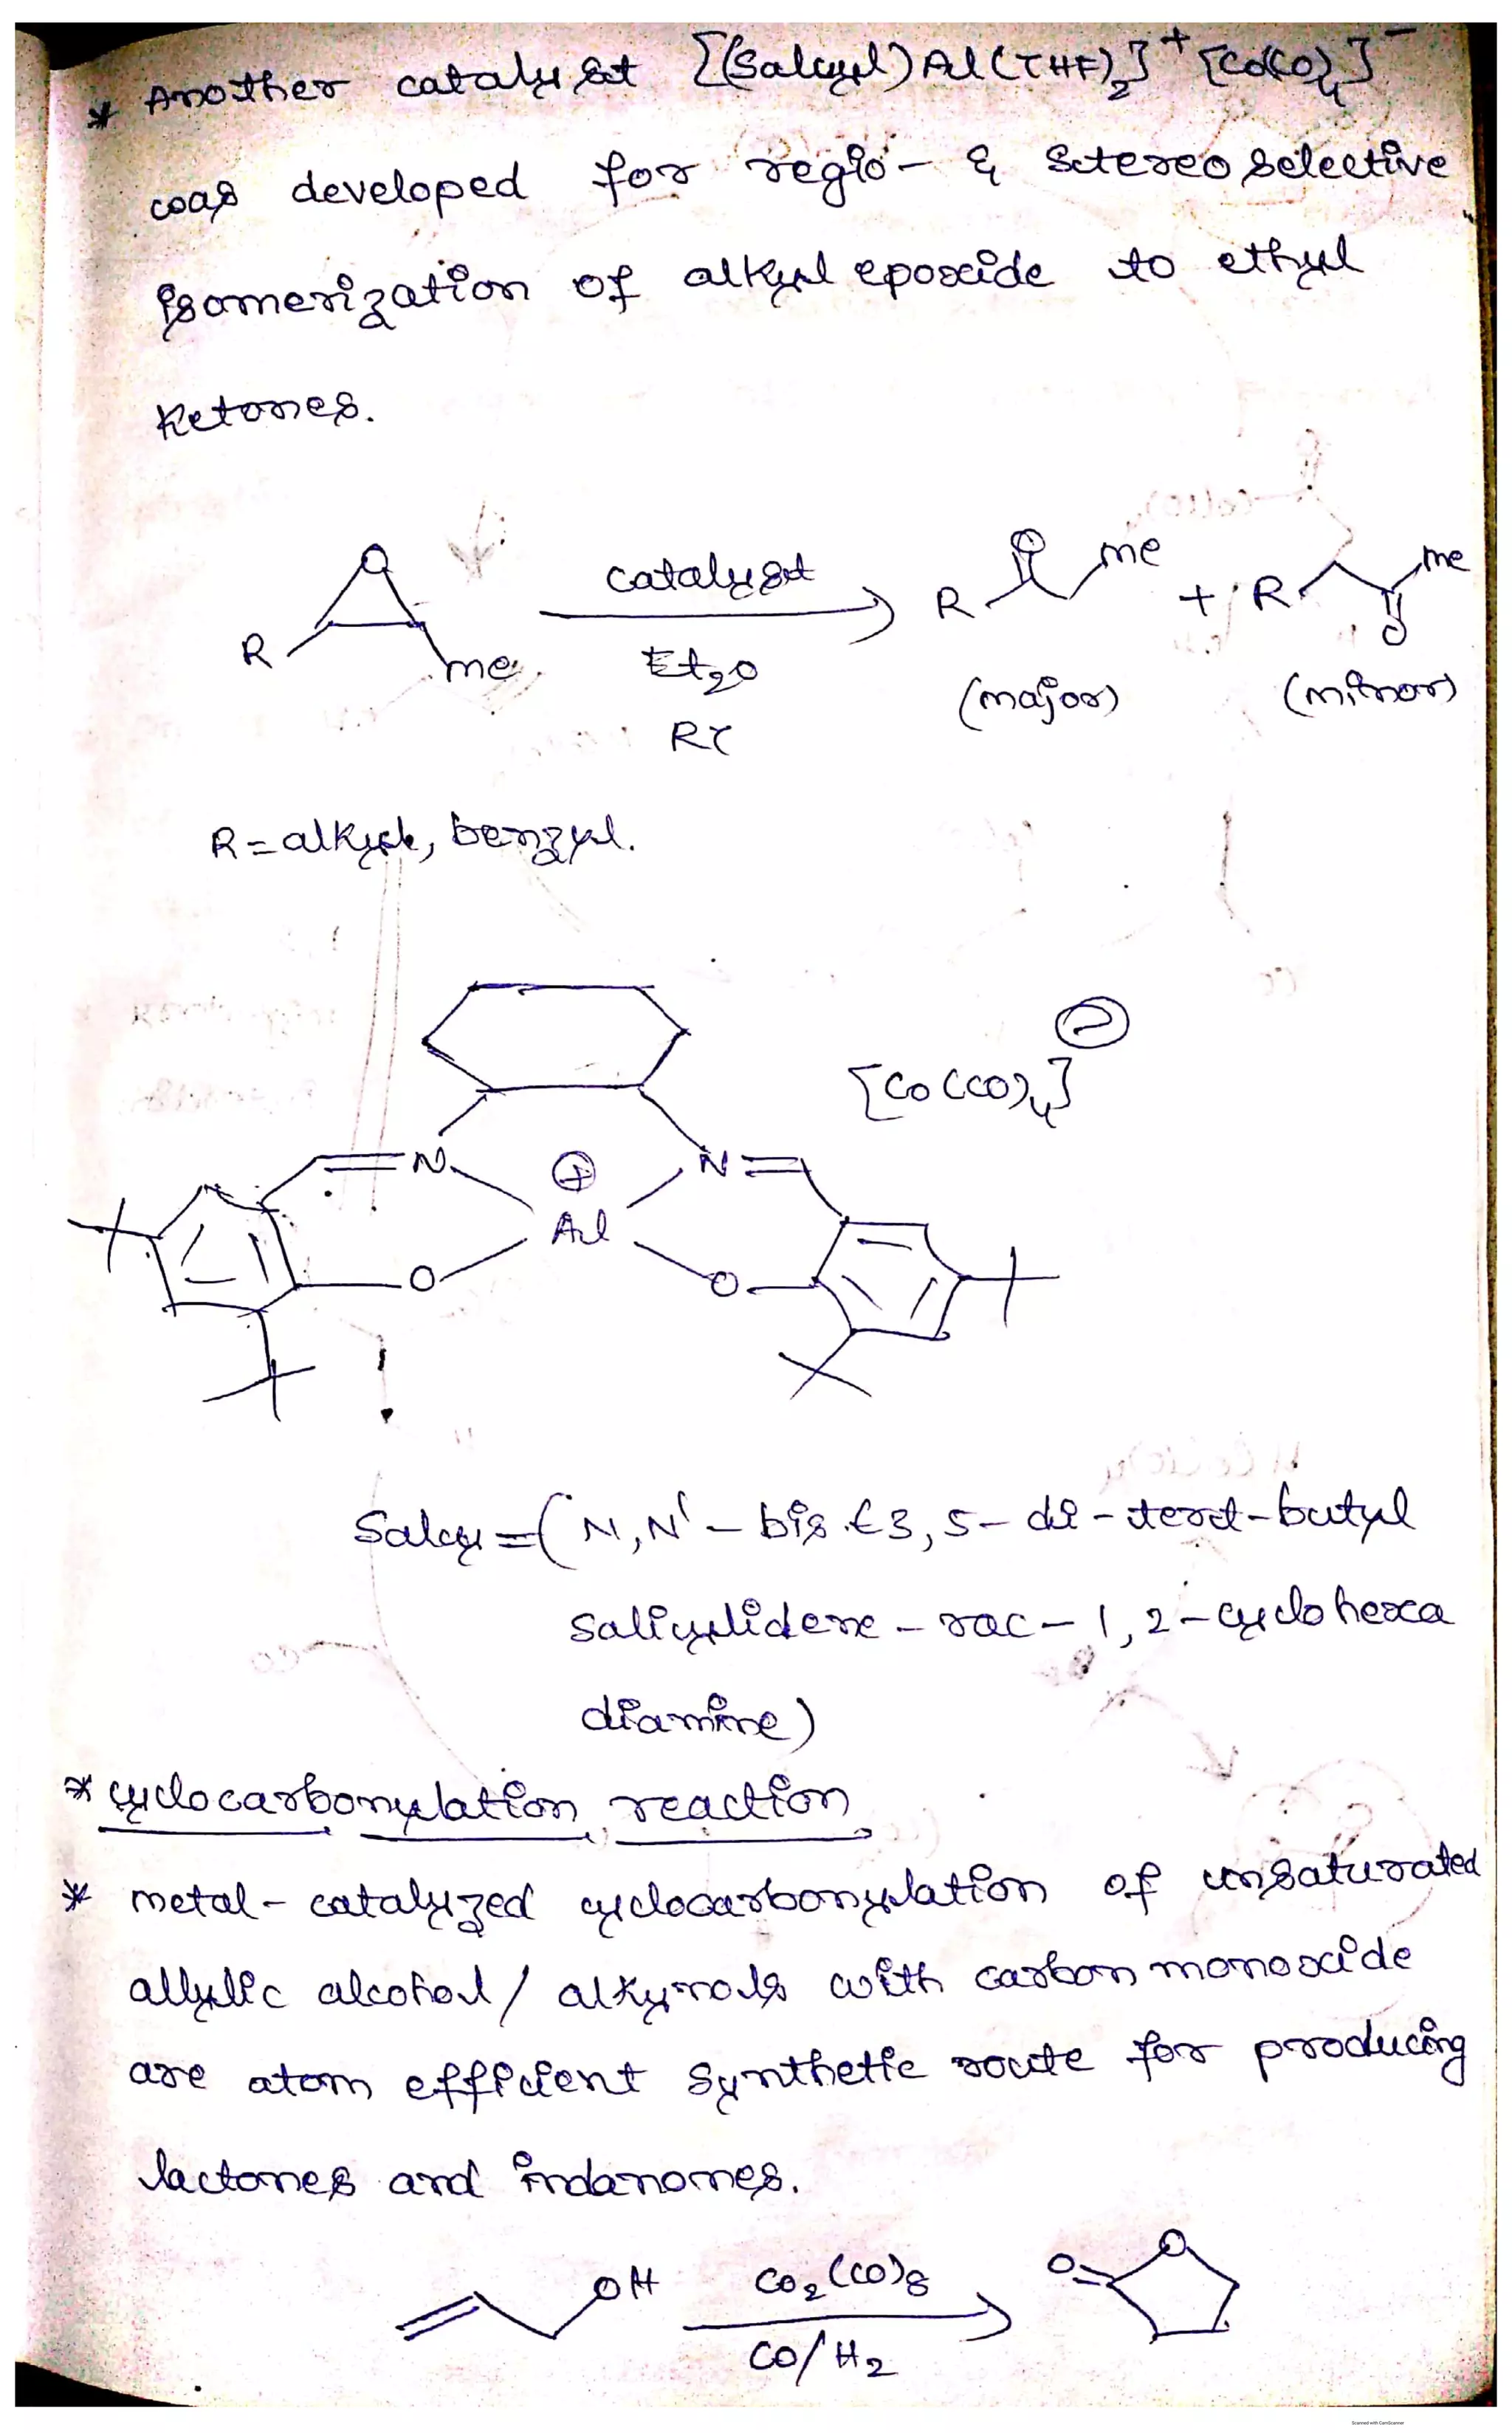 * Another catalyst [(Salcyl)Al(THF)2]+ [Co(CO)4]-
was developed for regio- & stereoselective
isomerization of alkyl epoxide to ethyl
ketones.
O
R
me
catalyst
Et2O
RT
R
O
me
(major)
+
R
me
O
(minor)
R = alkyl, benzyl.
[Co(CO)4]
⊖
N
⊕
Al
N
O
O
Salcy = (N,N' - bis (3,5 - di - tert - butyl
salicylidene - rac - 1,2 - cyclohexa
diamine)
* cyclocarbonylation reaction
* metal - catalyzed cyclocarbonylation of unsaturated
allylic alcohol / alkynols with carbon monoxide
are atom efficient synthetic route for producing
lactones and indanones.
OH
Co2(CO)8
CO/H2
O
O
Scanned with CamScanner